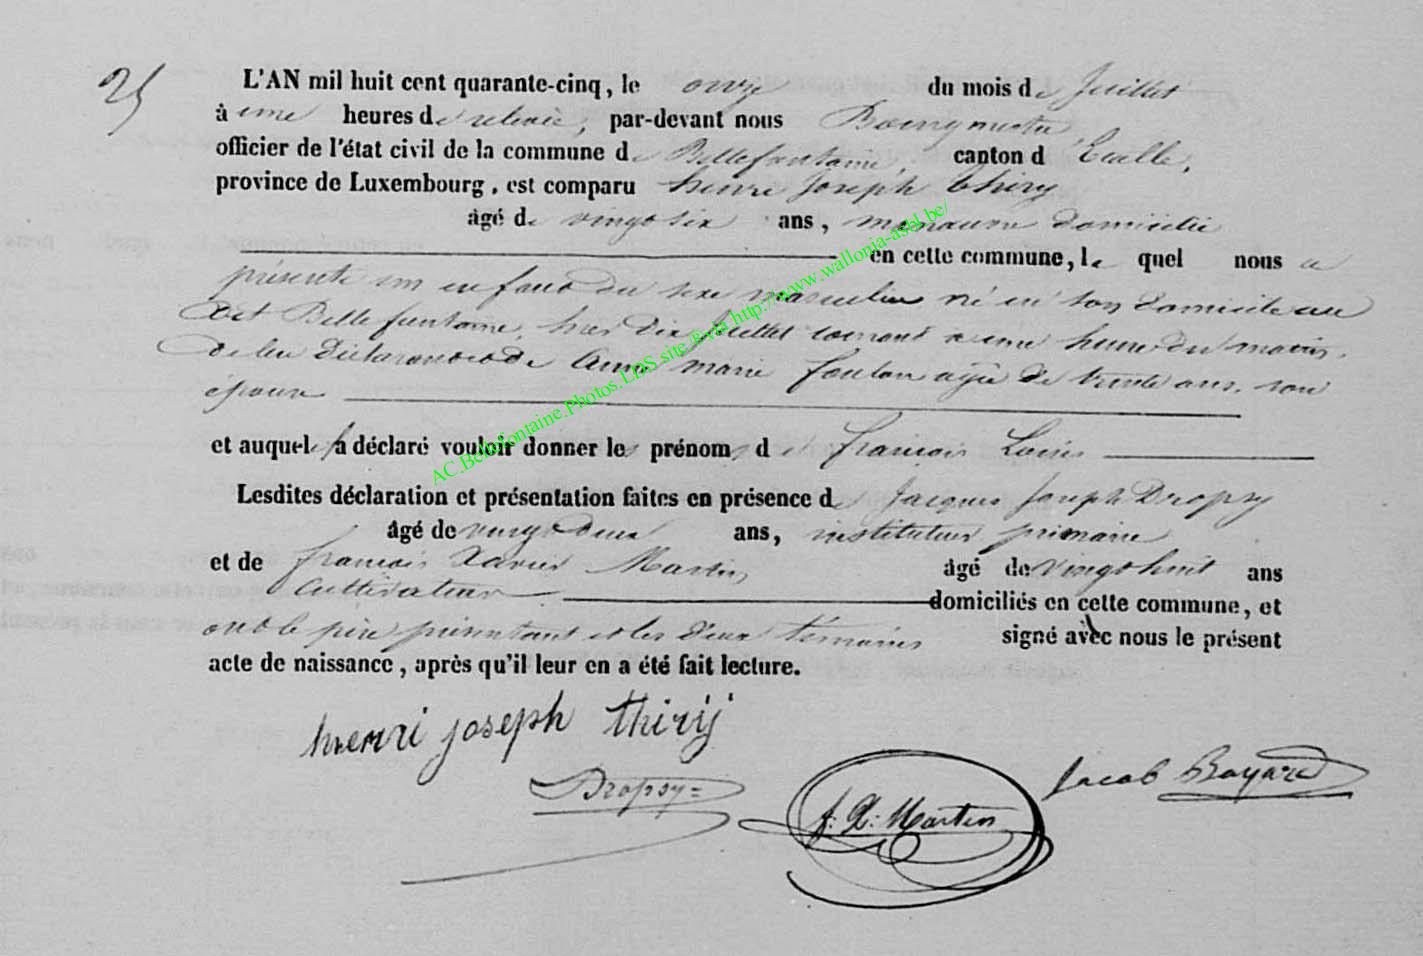 25
L'AN mil huit cent quarante-cinq, le onze du mois de Juillet
à une heures de relevée, par-devant nous Bourgmestre
officier de l'état civil de la commune de Bellefontaine, canton d'Etalle,
province de Luxembourg, est comparu henri Joseph thiry
âgé de vingt six ans, manœuvre domicilié
en cette commune, lequel nous a
présenté un enfant du sexe masculin né en son domicile au
dit Bellefontaine, hier dix Juillet courant a une heure du matin,
de lui déclarant et de Anne marie foulon agée de trente ans, son
épouse
et auquel il a déclaré vouloir donner les prénoms de françois Louis
Lesdites déclaration et présentation faites en présence de Jacques Joseph Dropsy
âgé de vingt deux ans, instituteur primaire
et de françois Xavier Martin âgé de vingt huit ans
cultivateur domiciliés en cette commune, et
ont le père présentant et les deux témoins signé avec nous le présent
acte de naissance, après qu'il leur en a été fait lecture.
henri joseph thirij
Dropsy
f: X: Martin
Jacob Bayard
AC.Bellefontaine.Photos.LDS site /&via http://www.wallonia-asbl.be/